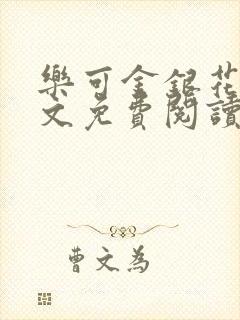 樂可金銀花
文免費閱讀
曹文為